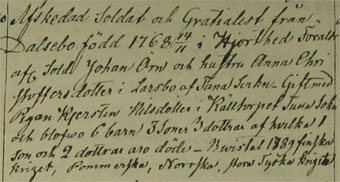 Afskedad Soldat och Gratialist från
Dalsebo född 1768 14/11 i Hjorthed Föräldr
af Sold. Johan Örn och hustru Anna Chri
stoffersdotter i Larsbo af Tuna Sockn - Gift med
Pigan Kjerstin Nilsdotter i Källtorpet Tuna Sokn
och blefvo 6 barn 3 Söner 3 döttrar af hvilka 1
son och 2 döttrar äro döde - Bevistat finska
Kriget, Pommerska, Norrska, Stora Tyska Krigita